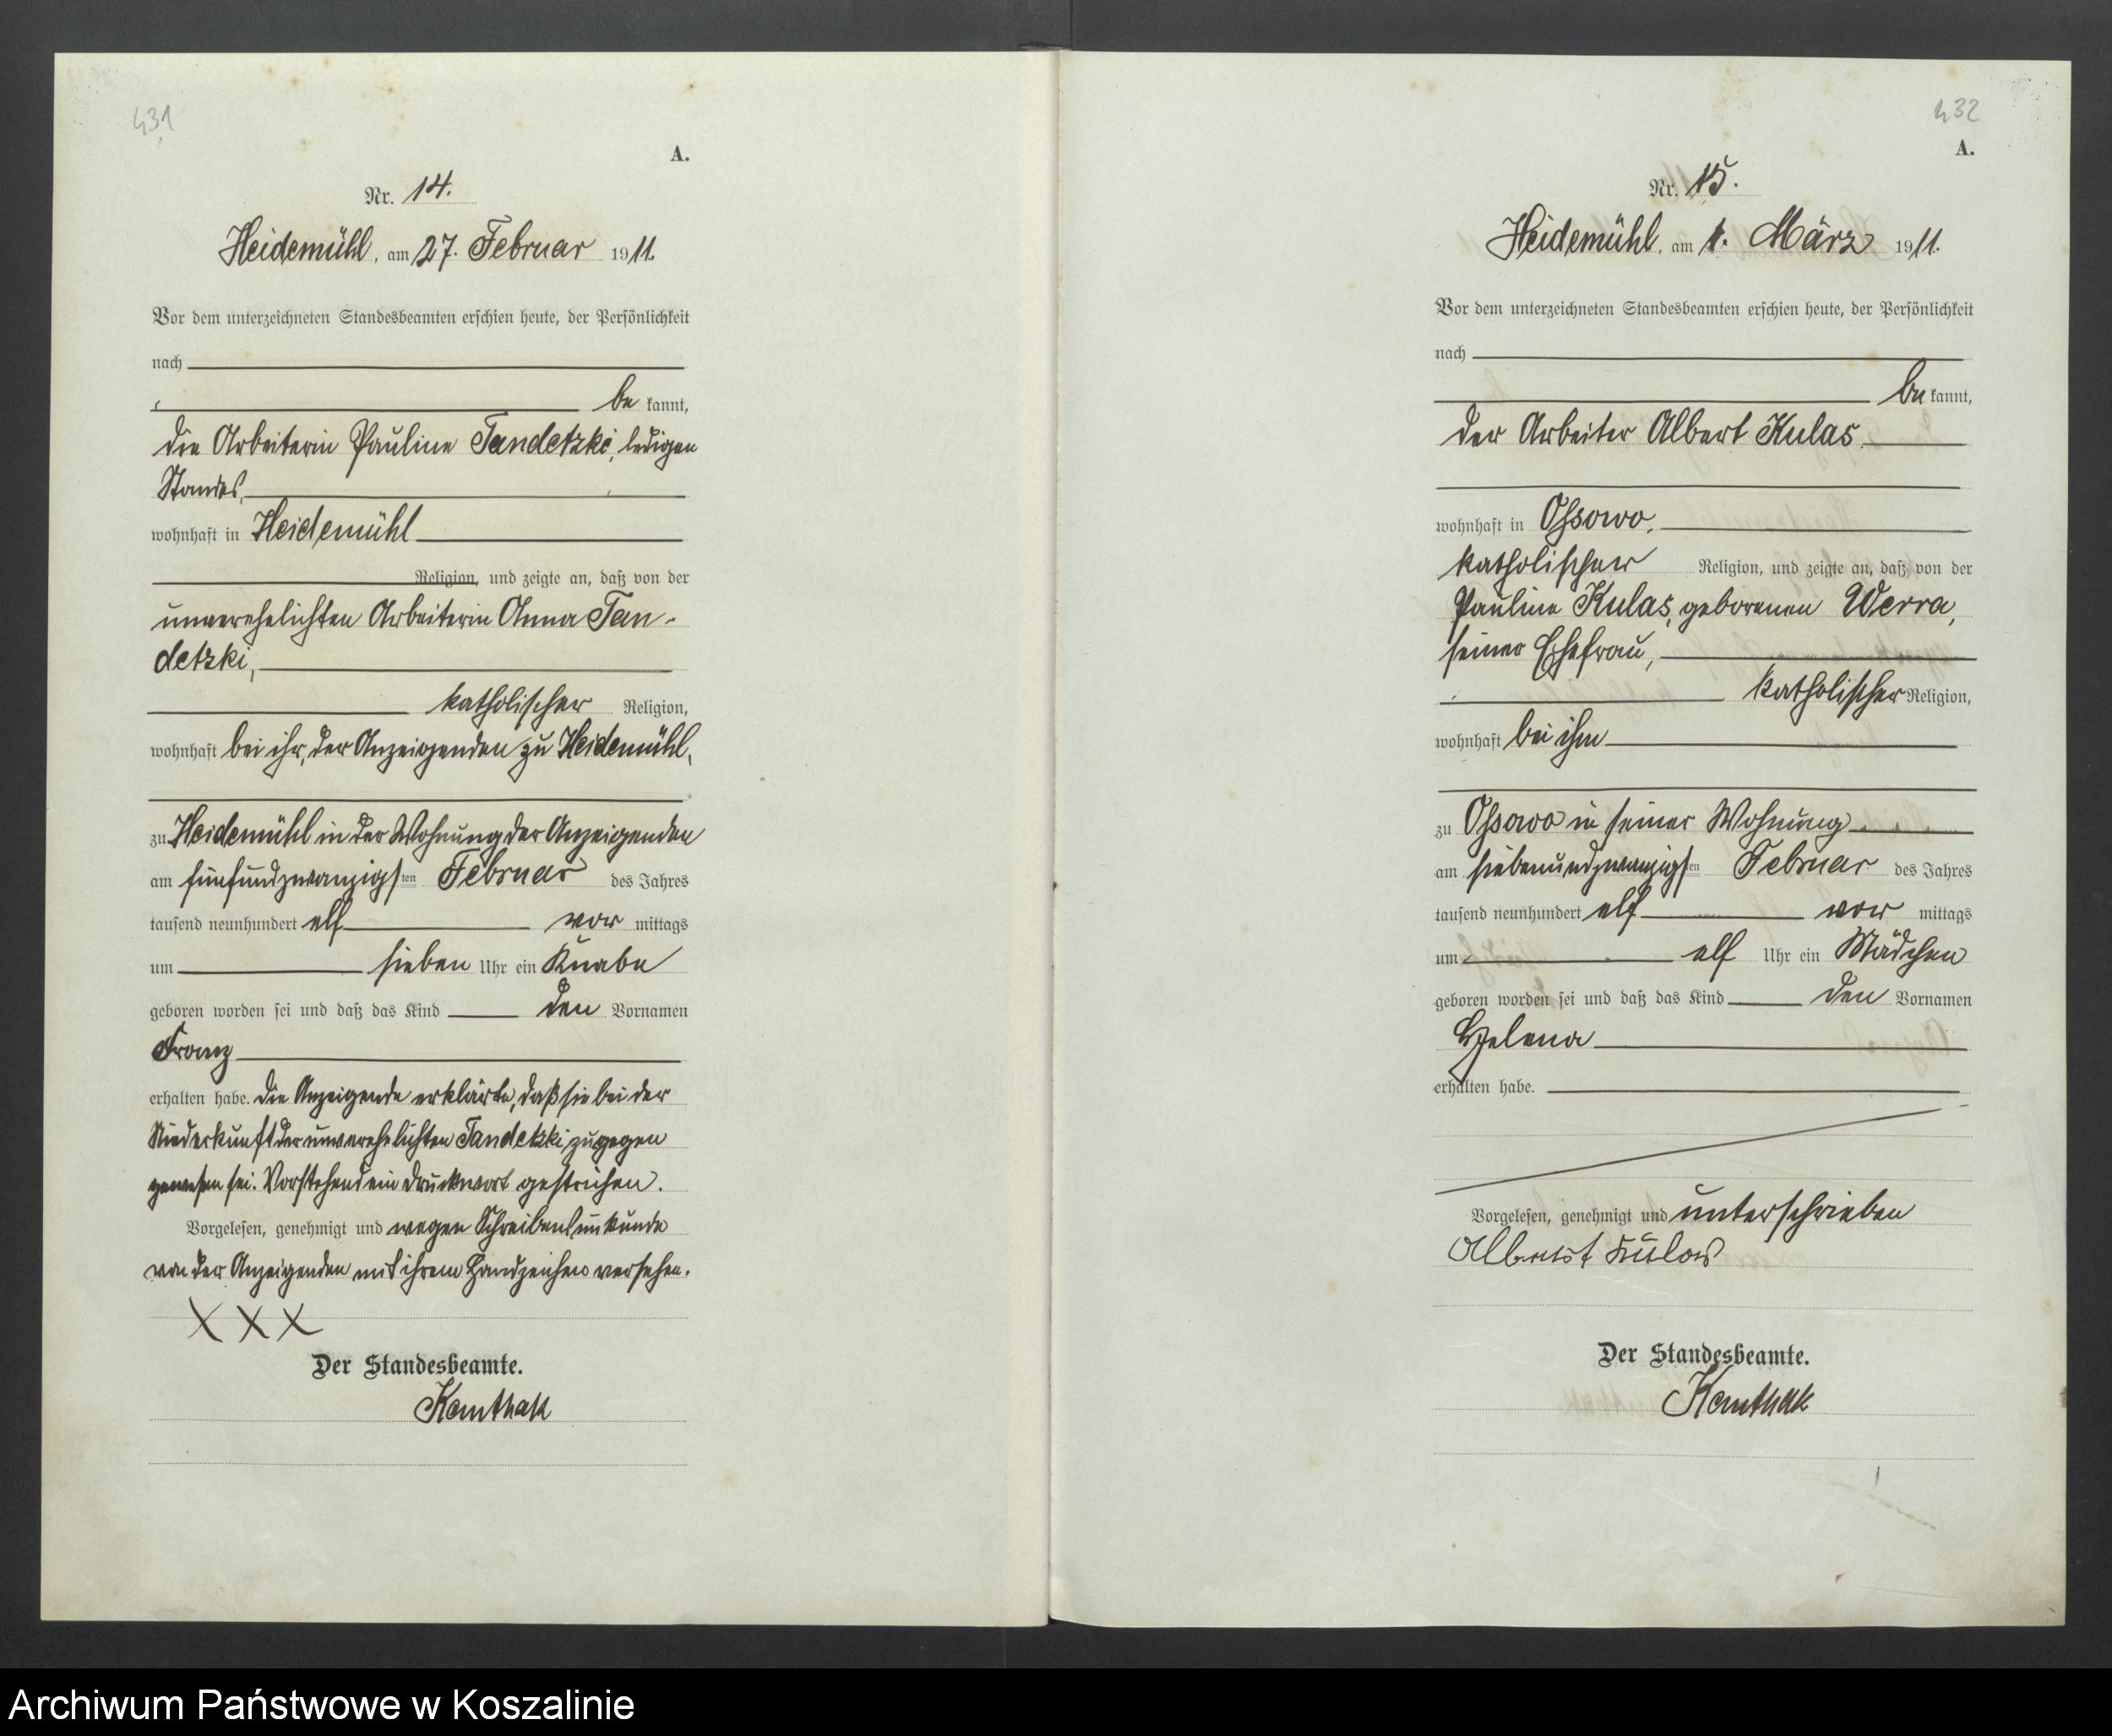 431
A.
Nr. 14.
Heidemühl, am 27. Februar 1911.
Vor dem unterzeichneten Standesbeamten erschien heute, der Persönlichkeit
nach
be kannt,
die Arbeiterin Pauline Tandetzki, ledigen
Standes,
wohnhaft in Heidemühl
Religion, und zeigte an, daß von der
unverehelichten Arbeiterin Anna Tan-
detzki,
katholischer Religion,
wohnhaft bei ihr, der Anzeigenden zu Heidemühl,
zu Heidemühl in der Wohnung der Anzeigenden
am fünfundzwanzigsten Februar des Jahres
tausend neunhundert elf vor mittags
um sieben Uhr ein Knabe
geboren worden sei und daß das Kind den Vornamen
Franz
erhalten habe. Die Anzeigende erklärte, daß sie bei der
Niederkunft der unverehelichten Tandetzki zugegen
gewesen sei. Vorstehend ein Druckwort gestrichen.
Vorgelesen, genehmigt und wegen Schreibensunkunde
von der Anzeigenden mit ihrem Handzeichen versehen.
X X X
Der Standesbeamte.
432
A.
Nr. 15.
Heidemühl, am 1. März 1911.
Vor dem unterzeichneten Standesbeamten erschien heute, der Persönlichkeit
nach
be kannt,
der Arbeiter Albert Kulas
wohnhaft in Ossowo,
katholischer Religion, und zeigte an, daß von der
Pauline Kulas, geborenen Werra,
seiner Ehefrau,
katholischer Religion,
wohnhaft bei ihm
zu Ossowo in seiner Wohnung
am siebenundzwanzigsten Februar des Jahres
tausend neunhundert elf vor mittags
um elf Uhr ein Mädchen
geboren worden sei und daß das Kind den Vornamen
Helena
erhalten habe.
Vorgelesen, genehmigt und unterschrieben
Albert Kulas
Der Standesbeamte.
Archiwum Państwowe w Koszalinie